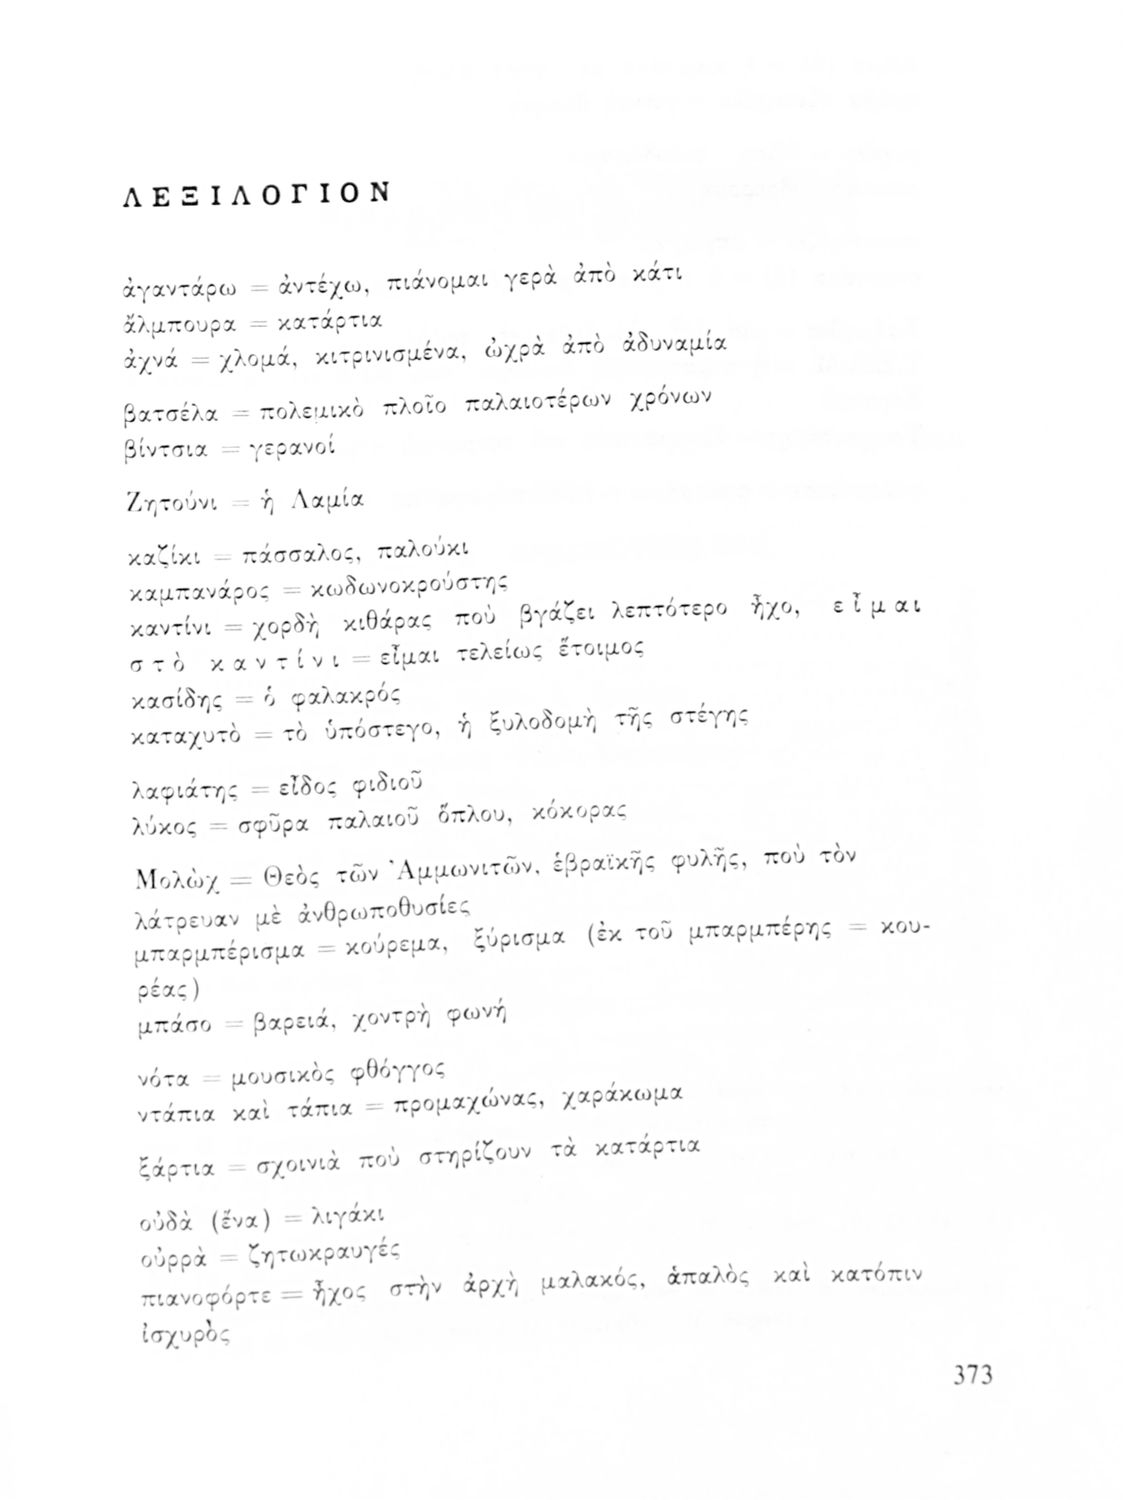 ΛΕΞΙΛΟΓΙΟΝ
ἀγαντάρω = ἀντέχω, πιάνομαι γερὰ ἀπὸ κάτι
ἄλμπουρα = κατάρτια
ἀχνά = χλομά, κιτρινισμένα, ὠχρὰ ἀπὸ ἀδυναμία
βατσέλα = πολεμικὸ πλοῖο παλαιοτέρων χρόνων
βίντσια = γερανοί
Ζητούνι = ἡ Λαμία
καζίκι = πάσσαλος, παλούκι
καμπανάρος = κωδωνοκρούστης
καντίνι = χορδὴ κιθάρας ποὺ βγάζει λεπτότερο ἦχο, εἶμαι
στὸ καντίνι = εἶμαι τελείως ἕτοιμος
κασίδης = ὁ φαλακρός
καταχυτὸ = τὸ ὑπόστεγο, ἡ ξυλοδομὴ τῆς στέγης
λαφιάτης = εἶδος φιδιοῦ
λύκος = σφῦρα παλαιοῦ ὅπλου, κόκορας
Μολὼχ = Θεὸς τῶν Ἀμμωνιτῶν, ἑβραϊκῆς φυλῆς, ποὺ τὸν
λάτρευαν μὲ ἀνθρωποθυσίες
μπαρμπέρισμα = κούρεμα, ξύρισμα (ἐκ τοῦ μπαρμπέρης = κου-
ρέας)
μπάσο = βαρειά, χοντρὴ φωνή
νότα = μουσικὸς φθόγγος
ντάπια καὶ τάπια = προμαχώνας, χαράκωμα
ξάρτια = σχοινιὰ ποὺ στηρίζουν τὰ κατάρτια
οὐδὰ (ἕνα) = λιγάκι
οὐρρὰ = ζητωκραυγές
πιανοφόρτε = ἦχος στὴν ἀρχὴ μαλακός, ἁπαλὸς καὶ κατόπιν
ἰσχυρὸς
373